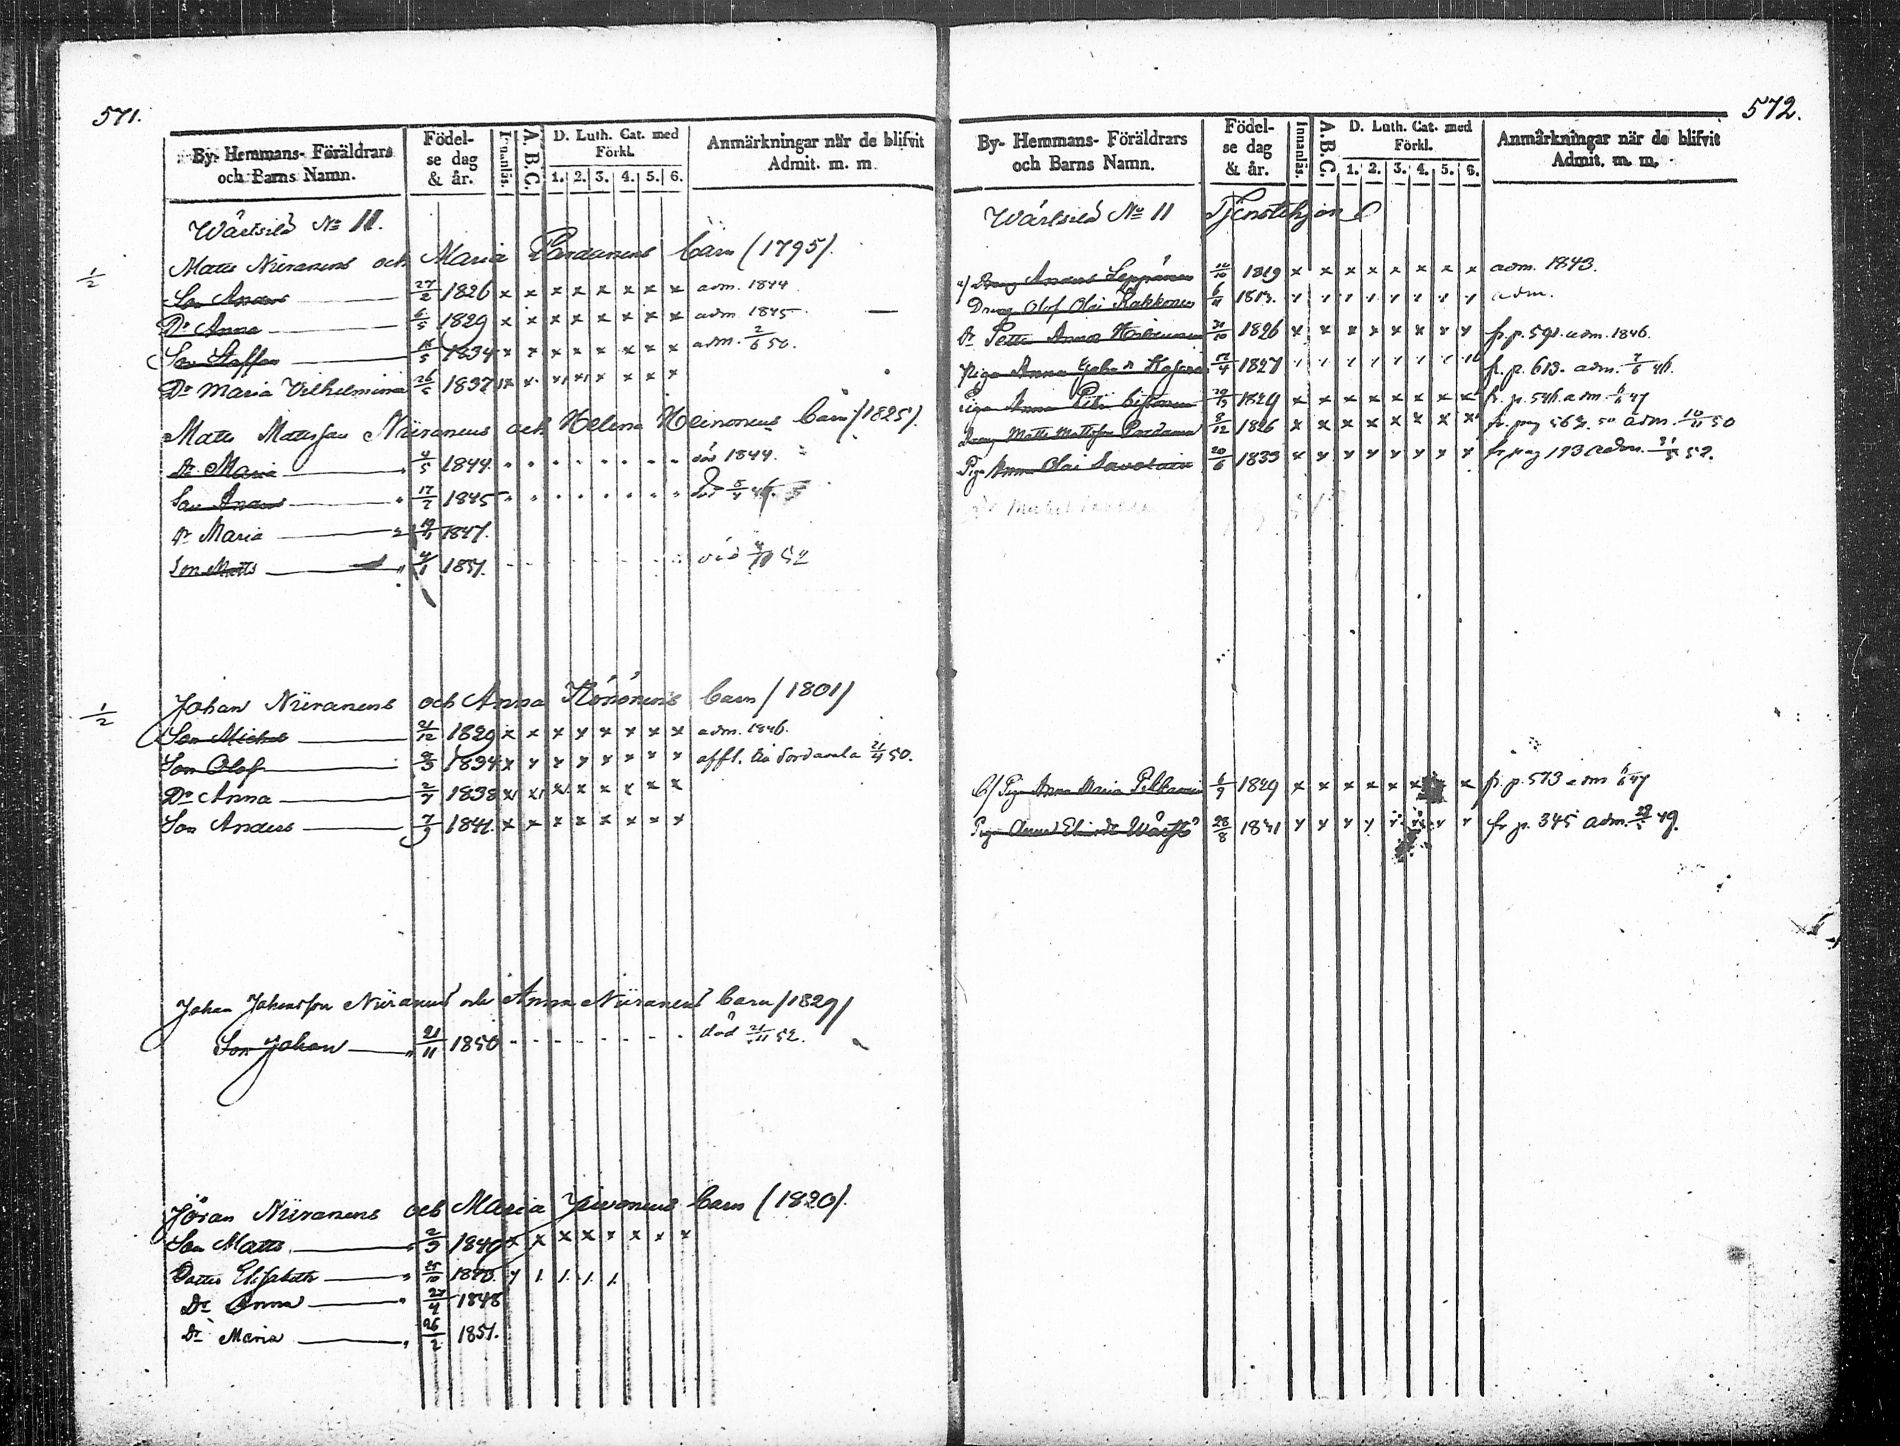 571.
By- Hemmans- Föräldrars och Barns Namn.
Födelse dag & år.
Innanläs.
A. B. C.
D. Luth. Cat. med Förkl.
1. 2. 3. 4. 5. 6.
Anmärkningar når de blifvit Admit. m. m.
Wärtsilä No 11.
1/2 Matts Niiranens och Maria Pardanens barn (1795).
Son Anders 27/2 1826 x x x x x x x x adm. 1844
Dr Anna 6/5 1829 x x x x x x x x adm. 1845
Son Staffan 16/5 1834 x x x x x x x x adm. 2/6 50.
Dr Maria Vilhelmina 26/5 1837 x x x x x x x x
Matts Mattsson Niiranens och Helena Heinonens barn (1825).
Dr Maria 4/5 1844. död 1844.
Son Anders 17/7 1845
Dr Maria 1847.
Son Matts 4/1 1851.
1/2 Johan Niiranens och Anna Könönens barn (1801)
Son Michel 21/12 1829 x x x x x x x x adm. 1846.
Son Olof 8/3 1834 x x x x x x x x affl. till Sordavala 21/4 50.
Dr Anna 2/7 1838 x x x x x x x x
Son Anders 7/9 1841. x x x x x x x x
Johan Johansson Niiranens och Anna Niiranens barn (1829)
Son Johan 21/11 1850 död 21/11 52.
Jöran Niiranens och Maria barn (1820).
Son Matts 2/9 1840 x x x x x x x x
Dotter Elisabeth 25/10
Dr Anna 27/4 1848
Dr Maria 26/2 1851.
572.
By- Hemmans- Föräldrars och Barns Namn.
Födelse dag & år.
Innanläs.
A. B. C.
D. Luth. Cat. med Förkl.
1. 2. 3. 4. 5. 6.
Anmärkningar når de blifvit Admit. m. m.
Wärtsilä No 11 Tjenstehjon
a) Dreng Anders Leppänen 1819 x x x x x x x x adm. 1843.
Dreng Olof Olai Kakkonen 6/11 1813. adm.
Dr Petter 1826 x x x x x x x x fr. p. 591. adm. 1846.
Piga Anna 1827 fr. p. 613. adm. 7/6 46.
Piga Anna 1829 x x x x x x x x fr. p. 546 adm. 6/6 47
Dreng Matts Mattsson Pardanen 8/12 1826 x x x x x x x x adm. 10/11 50
Piga Anna Olai Savolain 20/6 1833 fr. pag 193 adm. 52.
b) Piga Anna Maria Pelkonen 6/7 1829 x x x x x x x x fr. p. 573 adm 6/6 47
Piga Anna 28/8 1831 fr. p. 345 adm. 49.